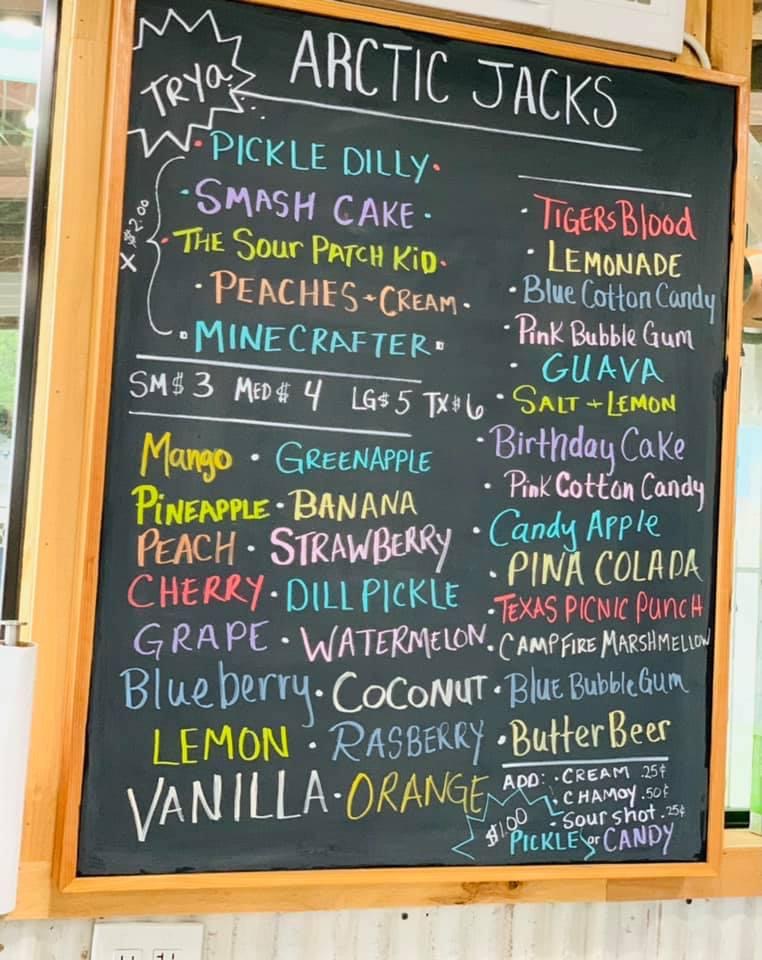 TRY a
ARCTIC JACKS
• PICKLE DILLY •
• SMASH CAKE •
• THE SOUR PATCH KID •
• PEACHES + CREAM •
• MINECRAFTER •
X $2.00
SM $3 MED $4 LG $5 TX $6
Mango • GREENAPPLE
PINEAPPLE • BANANA
PEACH • STRAWBERRY
CHERRY • DILL PICKLE
GRAPE • WATERMELON
Blueberry • COCONUT
LEMON • RASBERRY
VANILLA • ORANGE
• TIGERS Blood
• LEMONADE
• Blue Cotton Candy
• Pink Bubble Gum
• GUAVA
• SALT + LEMON
• Birthday Cake
• Pink Cotton Candy
• Candy Apple
• PINA COLADA
• TEXAS PICNIC PUNCH
• CAMPFIRE MARSHMELLOW
• BLUE BUBBLE GUM
• Butter Beer
ADD: • CREAM .25¢
• CHAMOY .50¢
• Sour shot .25¢
$1.00 PICKLE or CANDY